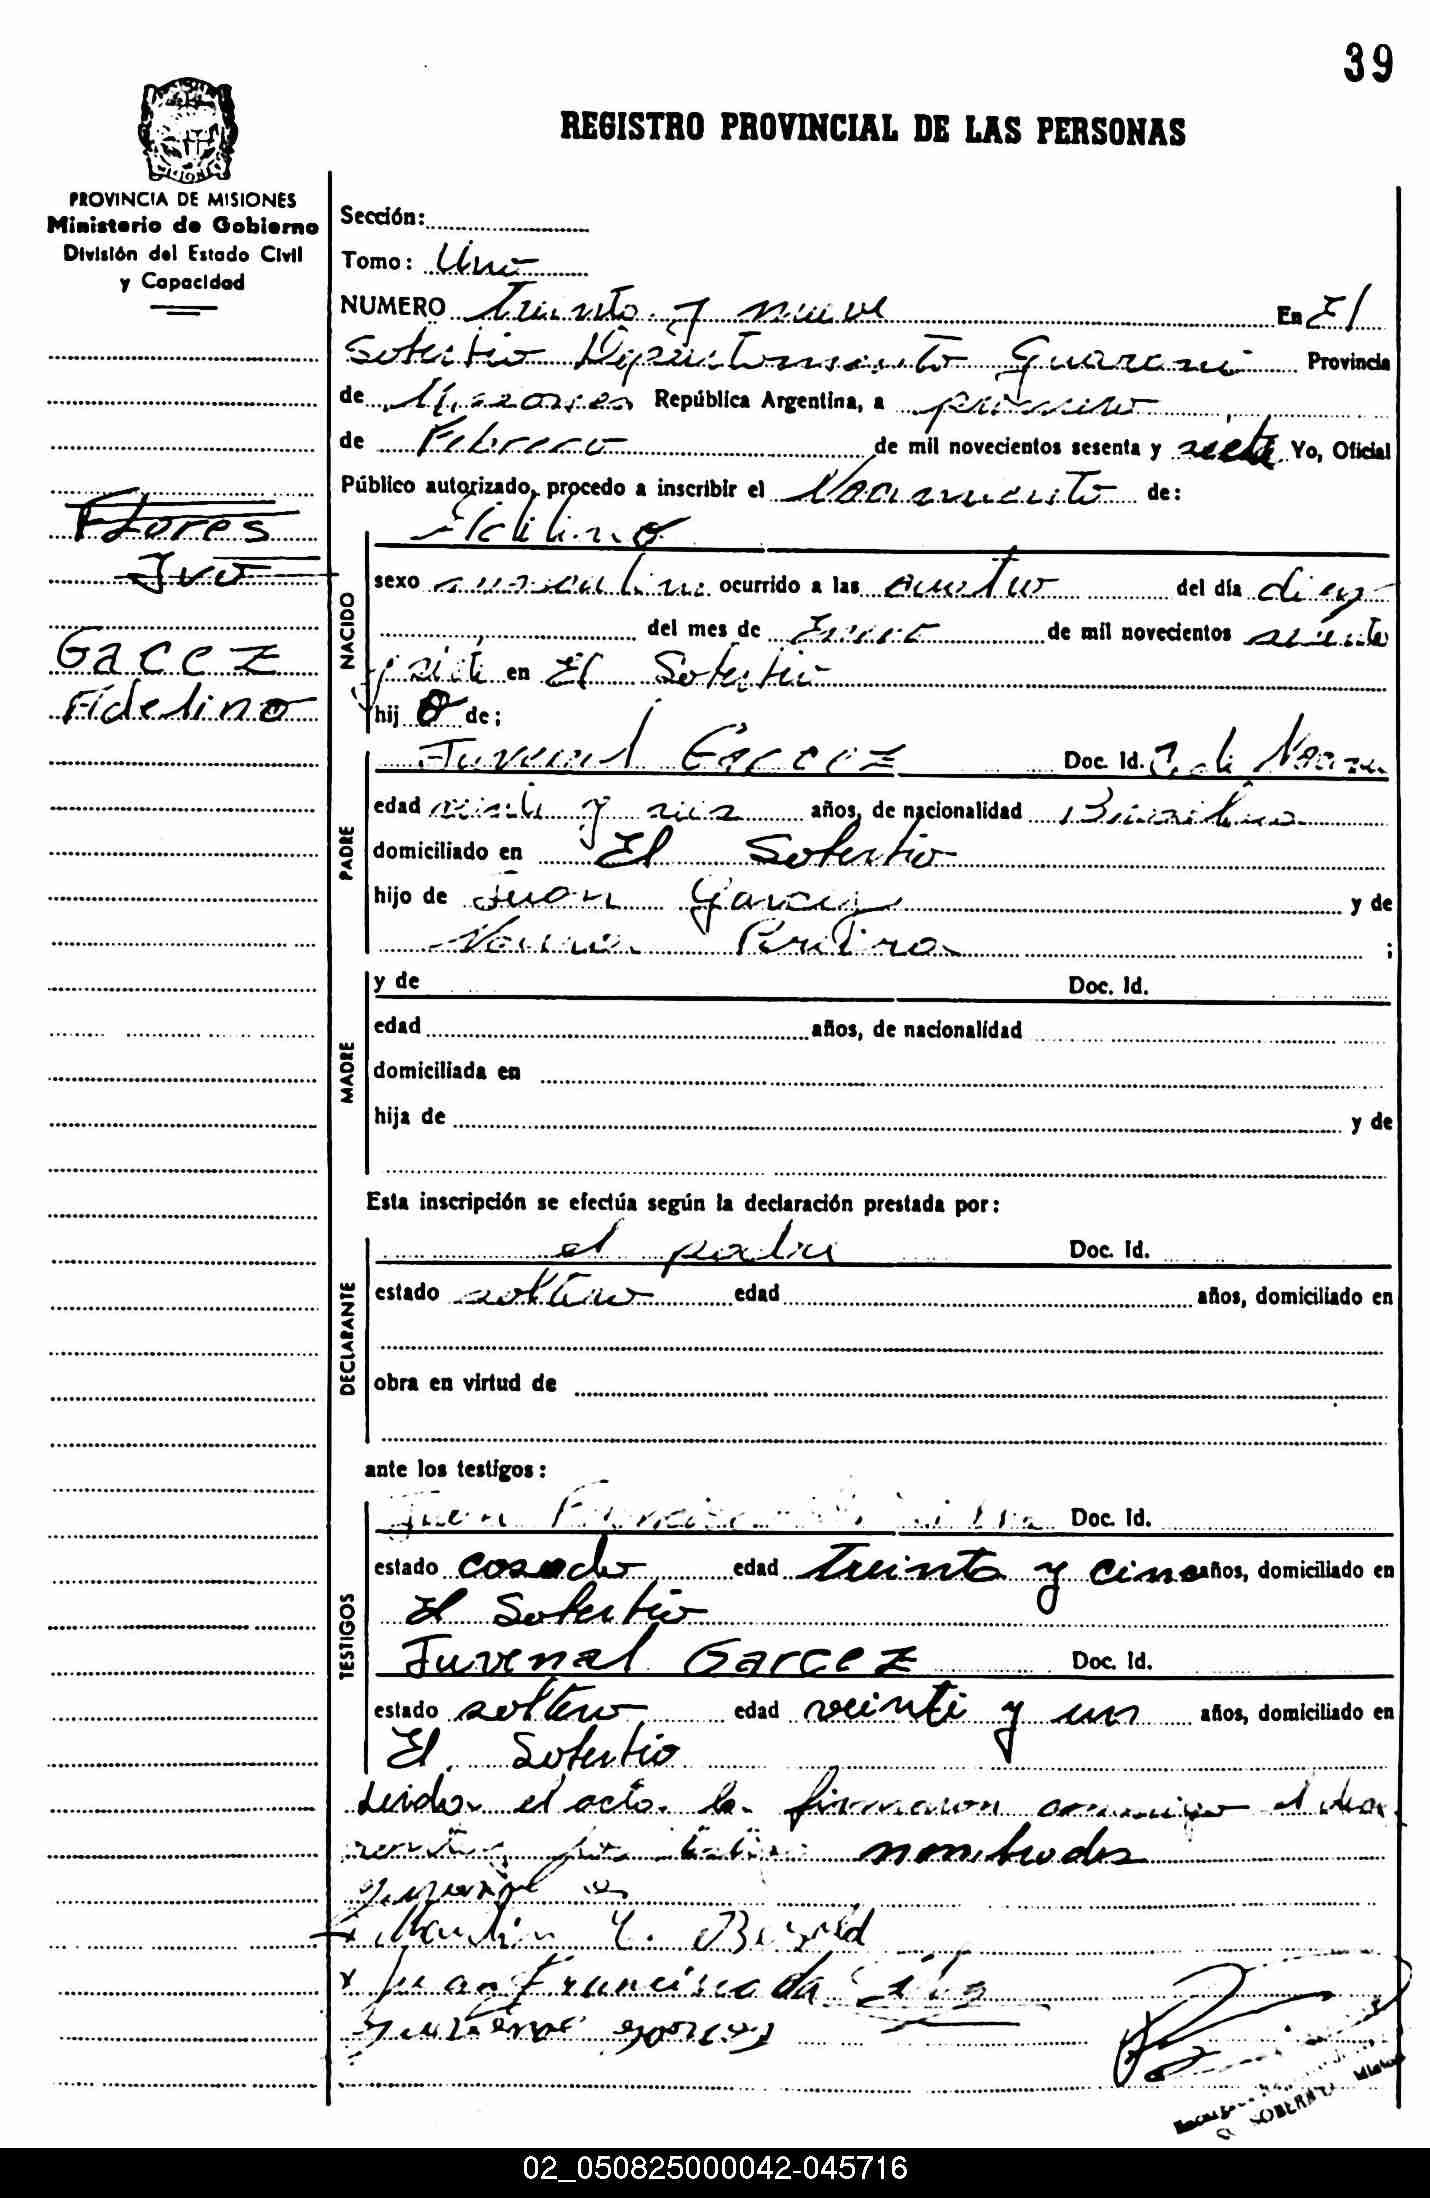 39
REGISTRO PROVINCIAL DE LAS PERSONAS
PROVINCIA DE MISIONES
Ministerio de Gobierno
División del Estado Civil
y Capacidad
Flores
Ivo
Garcez
Fidelino
Sección:
Tomo: Uno
NUMERO treinta y nueve En El
Soberbio Departamento Guarani Provincia
de Misiones República Argentina, a primero
de Febrero de mil novecientos sesenta y siete Yo, Oficial
Público autorizado, procedo a inscribir el Nacimiento de:
NACIDO
sexo masculino ocurrido a las cuatro del día diez
del mes de Enero de mil novecientos sesenta
y siete en El Soberbio
hijo de;
PADRE
Juvenal Garcez Doc. Id.
edad años, de nacionalidad
domiciliado en El Soberbio
hijo de Juan Garcez y de
Pereira ;
MADRE
y de Doc. Id.
edad años, de nacionalidad
domiciliada en
hija de y de
Esta inscripción se efectúa según la declaración prestada por:
DECLARANTE
el padre Doc. Id.
estado soltero edad años, domiciliado en
obra en virtud de
ante los testigos:
TESTIGOS
Juan Francisco Doc. Id.
estado casado edad treinta y cinco años, domiciliado en
El Soberbio
Juvenal Garcez Doc. Id.
estado soltero edad veinti y un años, domiciliado en
El Soberbio
Leido el acto la firmaron conmigo el
nombrados
Juan Francisco da Silva
02_050825000042-045716